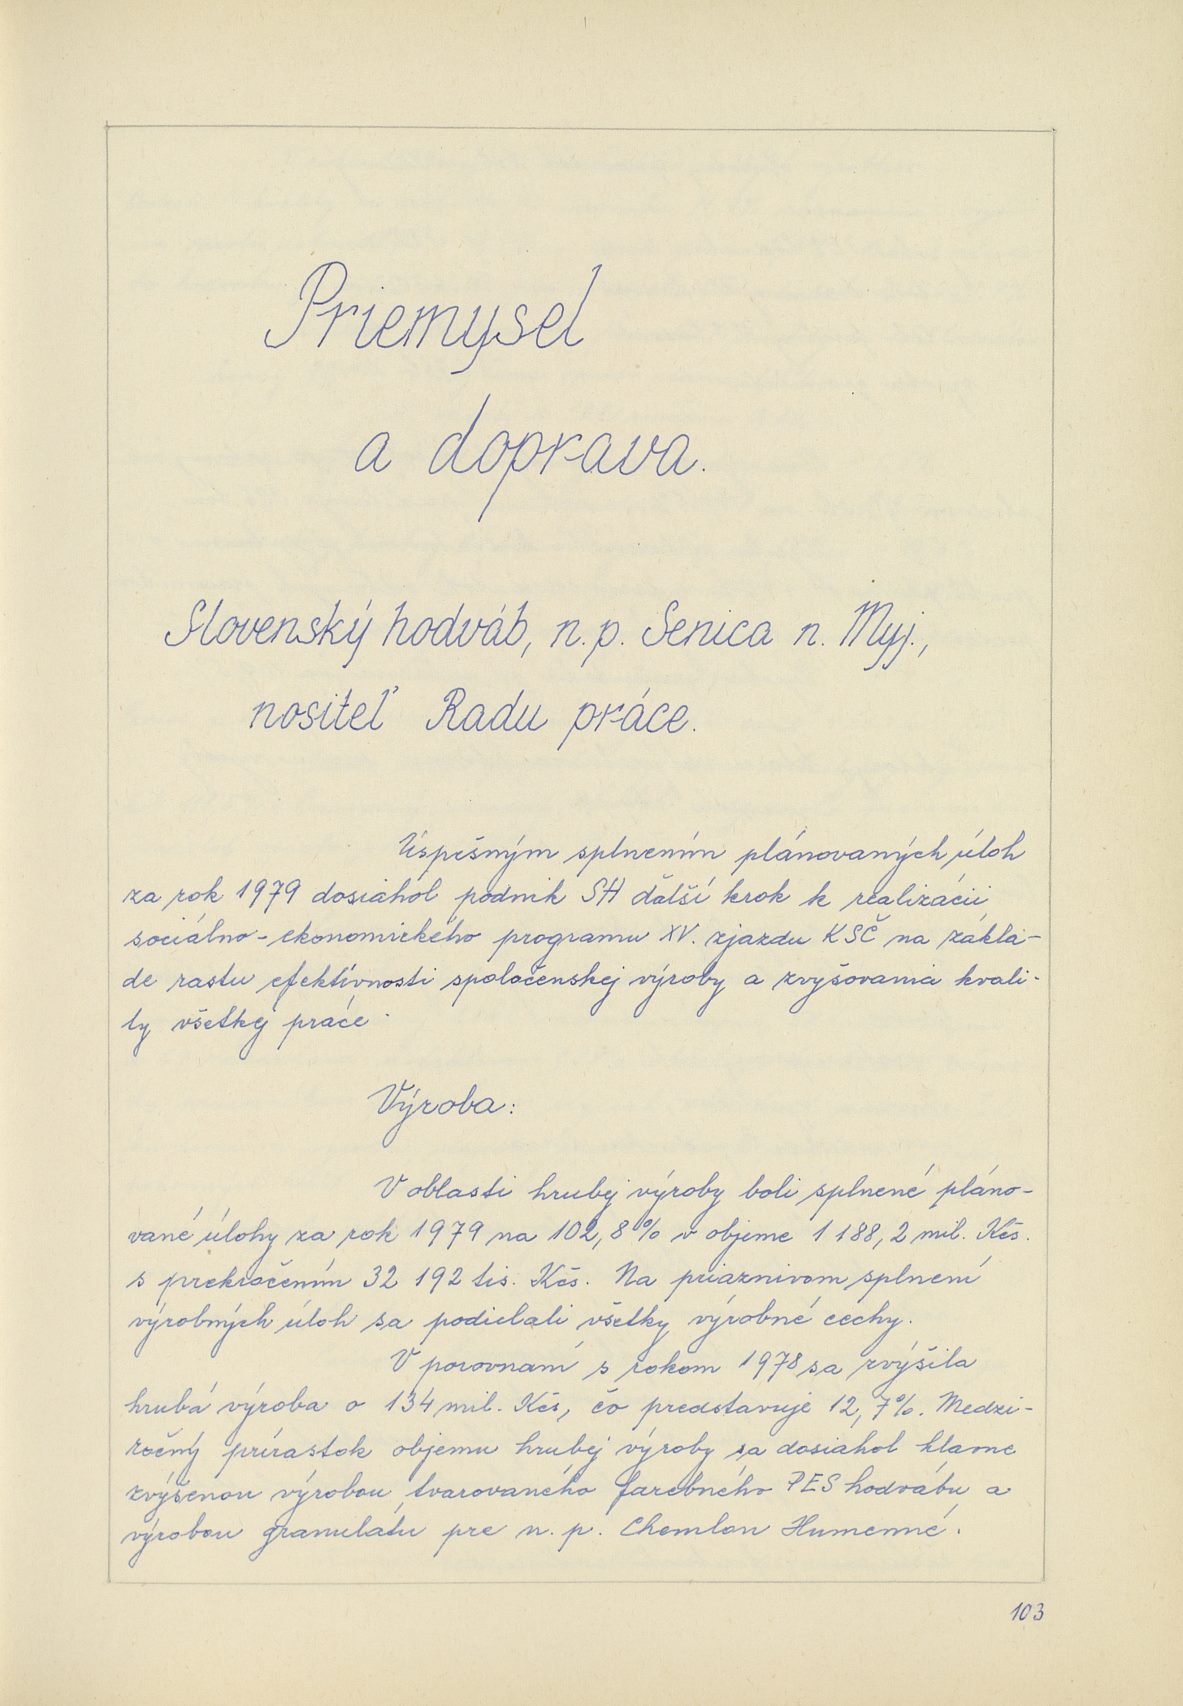 Priemysel
a doprava.
Slovenský hodváb, n. p. Senica n. Myj.,
nositeľ Radu práce.
Úspešným splnením plánovaných úloh
za rok 1979 dosiahol podnik SH ďalší krok k realizácii
sociálno-ekonomického programu XV. zjazdu KSČ na zákla-
de rastu efektívnosti spoločenskej výroby a zvyšovania kvali-
ty všetkej práce.
Výroba:
V oblasti hrubej výroby boli splnené pláno-
vané úlohy za rok 1979 na 102,8% v objeme 1 188,2 mil. Kčs.
s prekročením 32 192 tis. Kčs. Na priaznivom splnení
výrobných úloh sa podielali všetky výrobné cechy.
V porovnaní s rokom 1978 sa zvýšila
hrubá výroba o 134 mil. Kčs, čo predstavuje 12,7%. Medzi-
ročný prírastok objemu hrubej výroby sa dosiahol hlavne
zvýšenou výrobou tvarovaného farebného PES hodvábu a
výrobou granulátu pre n. p. Chemlon Humenné.
103